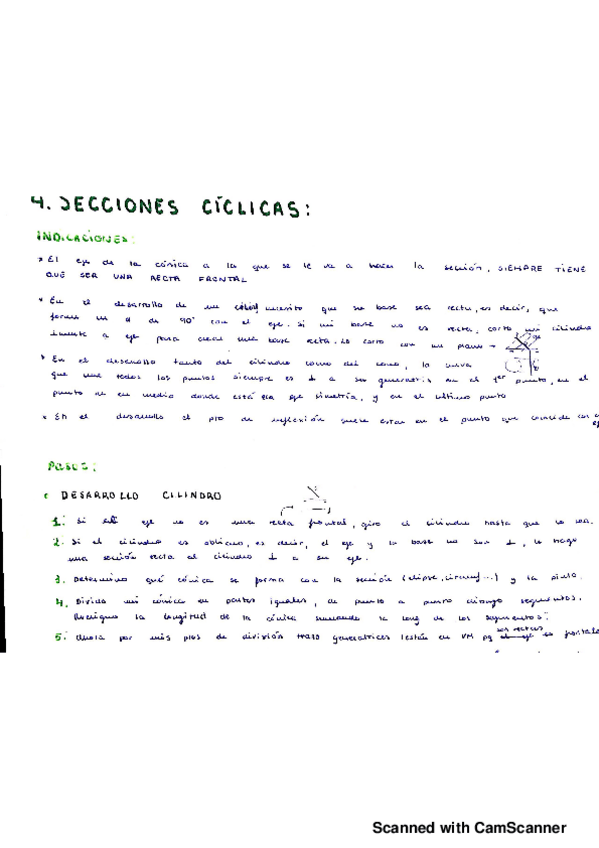 4. SECCIONES CÍCLICAS:
INDICACIONES:
* El eje de la cónica a la que se le va a hacer la sección, SIEMPRE TIENE
QUE SER UNA RECTA FRONTAL
* En el desarrollo de un necesito que su base sea recta, es decir, que
forme un de 90° con el eje. Si mi base no es recta, corto mi cilindro
a eje para crear una base recta. Lo corto con un plano →
* En el desarrollo tanto del cilindro como del cono, la curva
que une todos los puntos siempre es ⊥ a su generatriz en el 1er punto, en el
punto de en medio donde está eje simetría, y en el último punto
* En el desarrollo el pto de inflexión suele estar en el punto que coincide con
PASOS:
DESARROLLO CILINDRO
1. Si el eje no es una recta frontal, giro el cilindro hasta que lo sea.
2. Si el cilindro es oblicuo, es decir, el eje y la base no son ⊥, le hago
una sección recta al cilindro ⊥ a su eje.
3. Determino qué cónica se forma con la sección (elipse, circunf...) y la pinto.
4. Divido mi cónica en partes iguales, de punto a punto segmentos.
la longitud de la cónica sumando la long de los segmentos.
5. por mis ptos de división trazo generatrices (están en VM pq es frontal
Scanned with CamScanner